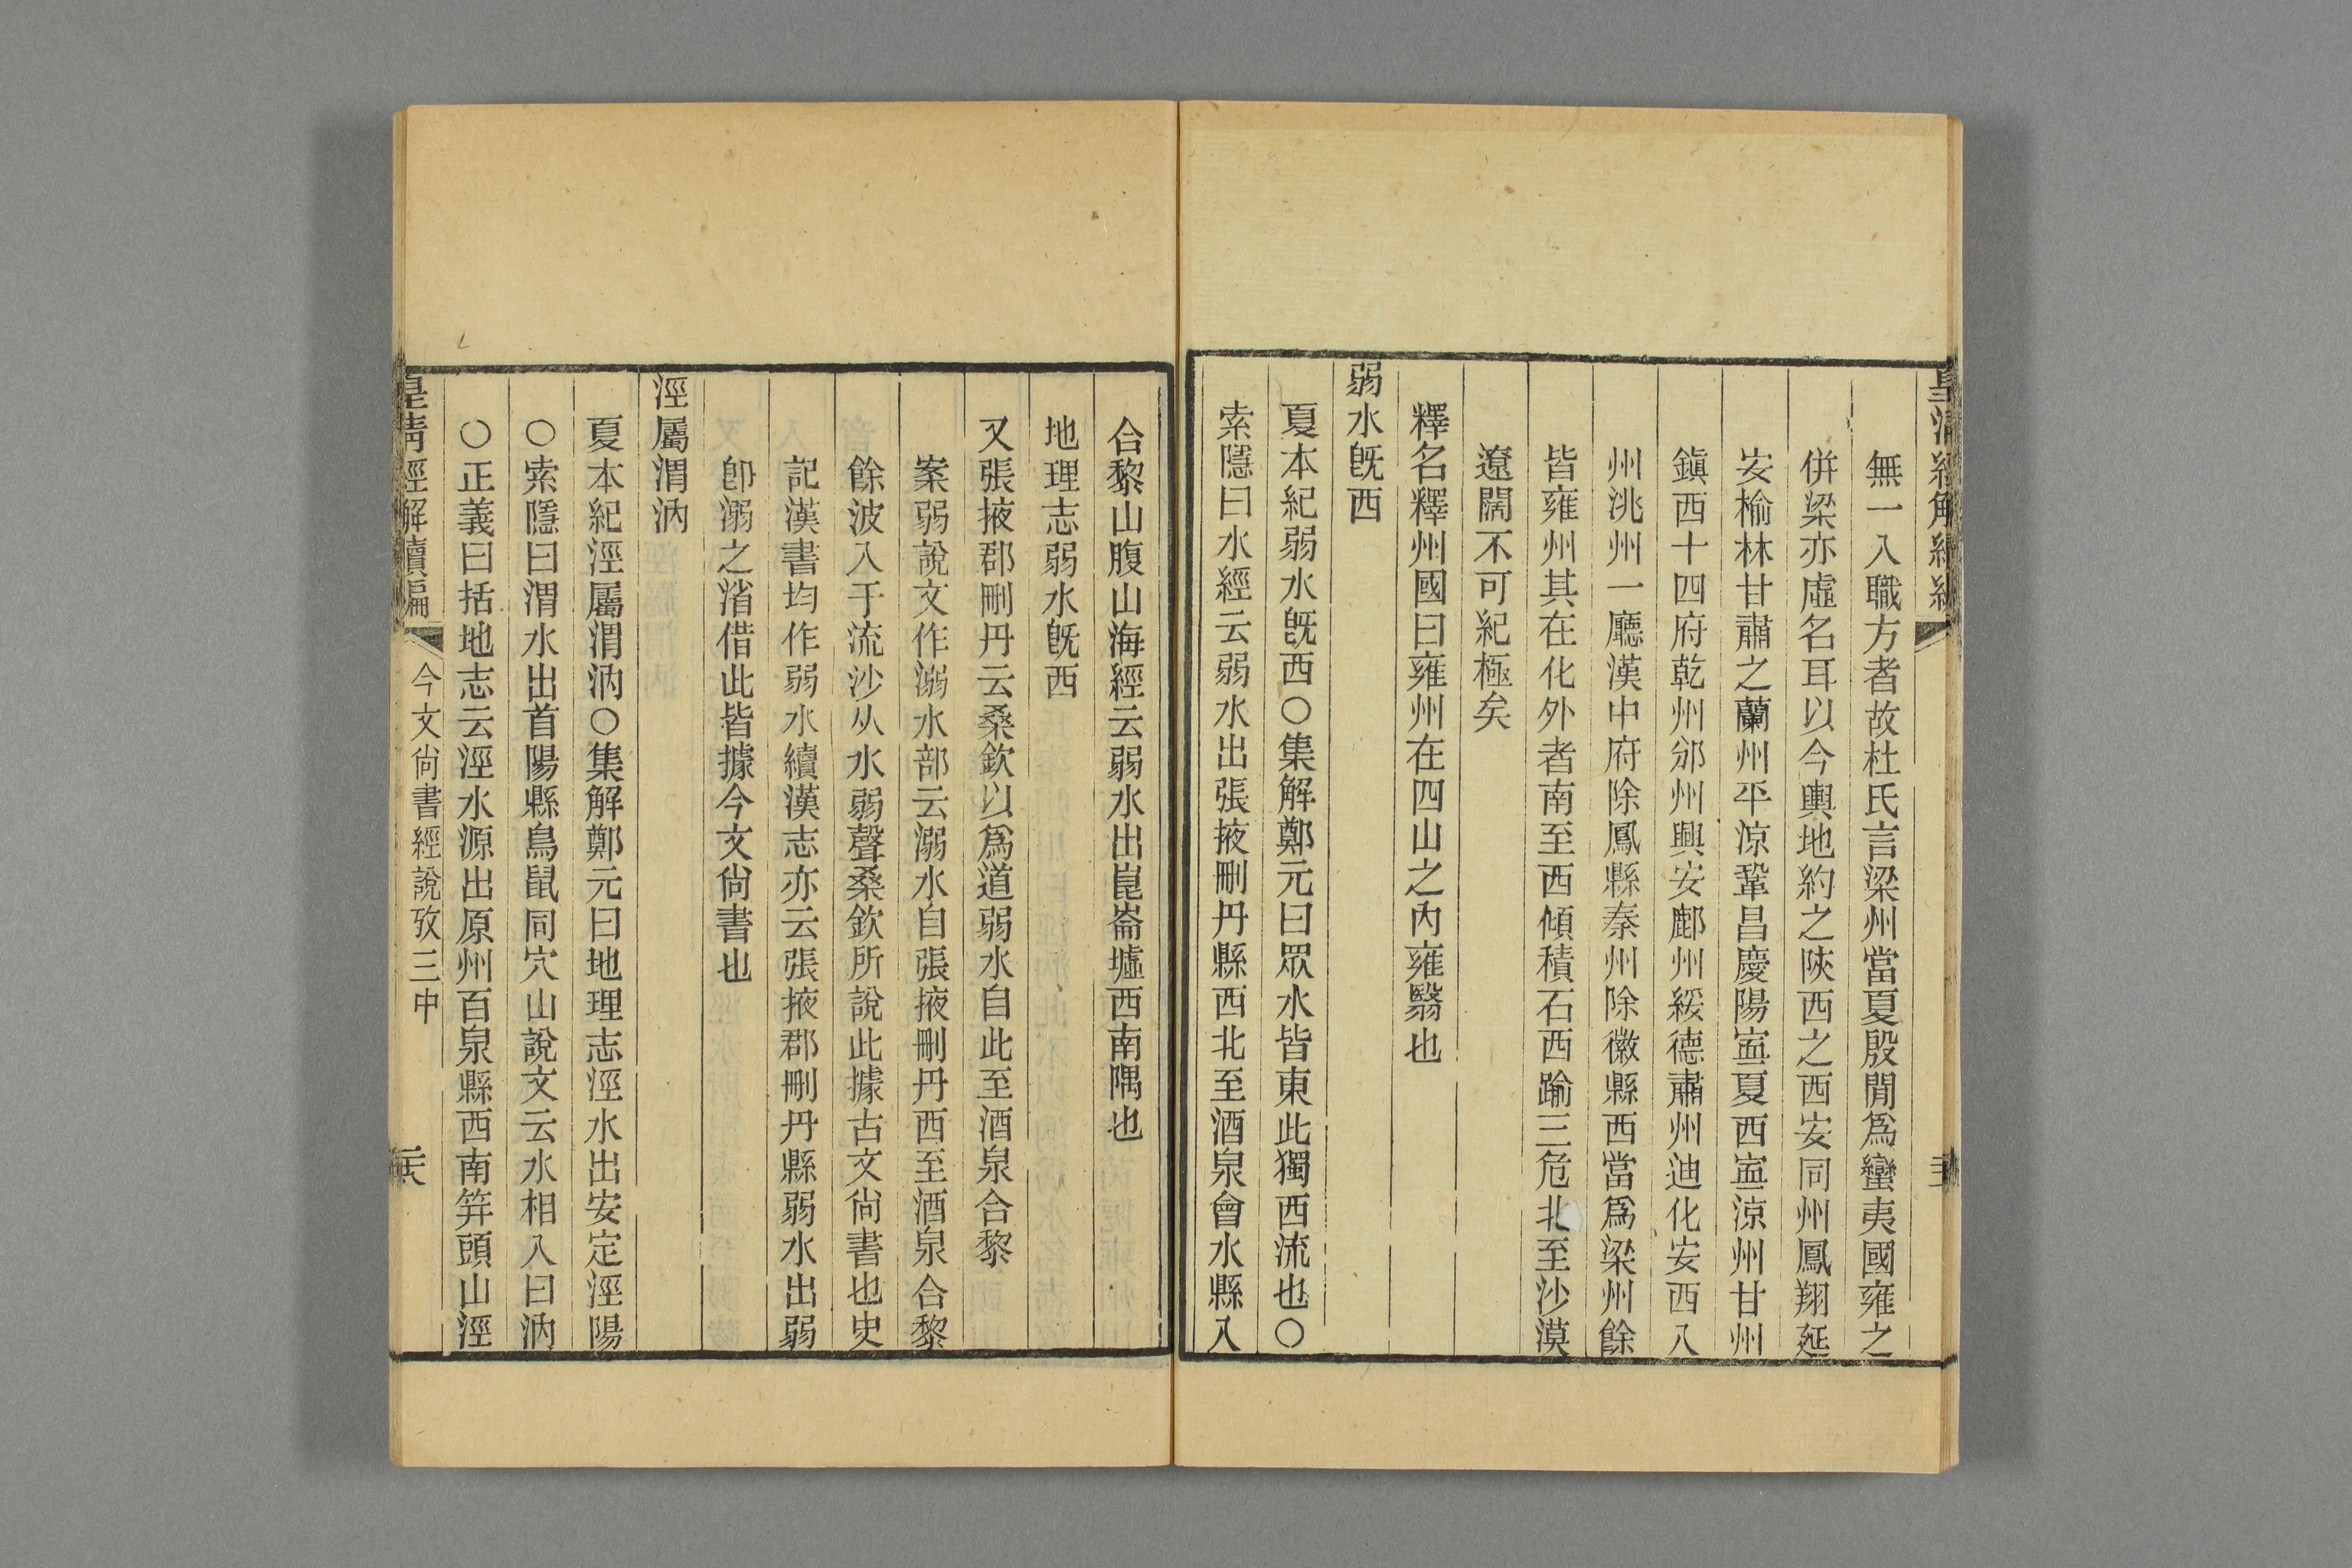 無一入職方者故杜氏言梁州當夏殷閒爲蠻夷國雍之
併梁亦虛名耳以今輿地約之陜西之西安同州鳳翔延
安楡林甘肅之蘭州平凉鞏昌慶陽寍夏西寍涼州甘州
鎭西十四府乾州邠州興安鄜州綏德肅州迪化安西八
州洮州一廳漢中府除鳳縣秦州除徽縣西當爲梁州餘
皆雍州其在化外者南至西傾積石西踰三危北至沙漠
遼闊不可紀極矣
釋名釋州國曰雍州在四山之內雍翳也
弱水旣西
夏本紀弱水旣西○集解鄭元曰眾水皆東此獨西流也○
索隱曰水經云弱水出張掖刪丹縣西北至酒泉會水縣入
合黎山腹山海經云弱水出崑崙墟西南隅也
地理志弱水旣西
又張掖郡刪丹云桑欽以爲道弱水自此至酒泉合黎
案弱說文作溺水部云溺水自張掖刪丹西至酒泉合黎
餘波入于流沙从水弱聲桑欽所說此據古文尙書也史
記漢書均作弱水續漢志亦云張掖郡刪丹縣弱水出弱
卽溺之渻借此皆據今文尙書也
涇屬渭汭
夏本紀涇屬渭汭○集解鄭元曰地理志涇水出安定涇陽
○索隱曰渭水出首陽縣鳥鼠同穴山說文云水相入曰汭
○正義曰括地志云涇水源出原州百泉縣西南笄頭山涇
皇淸經解續編
今文尙書經說攷三中